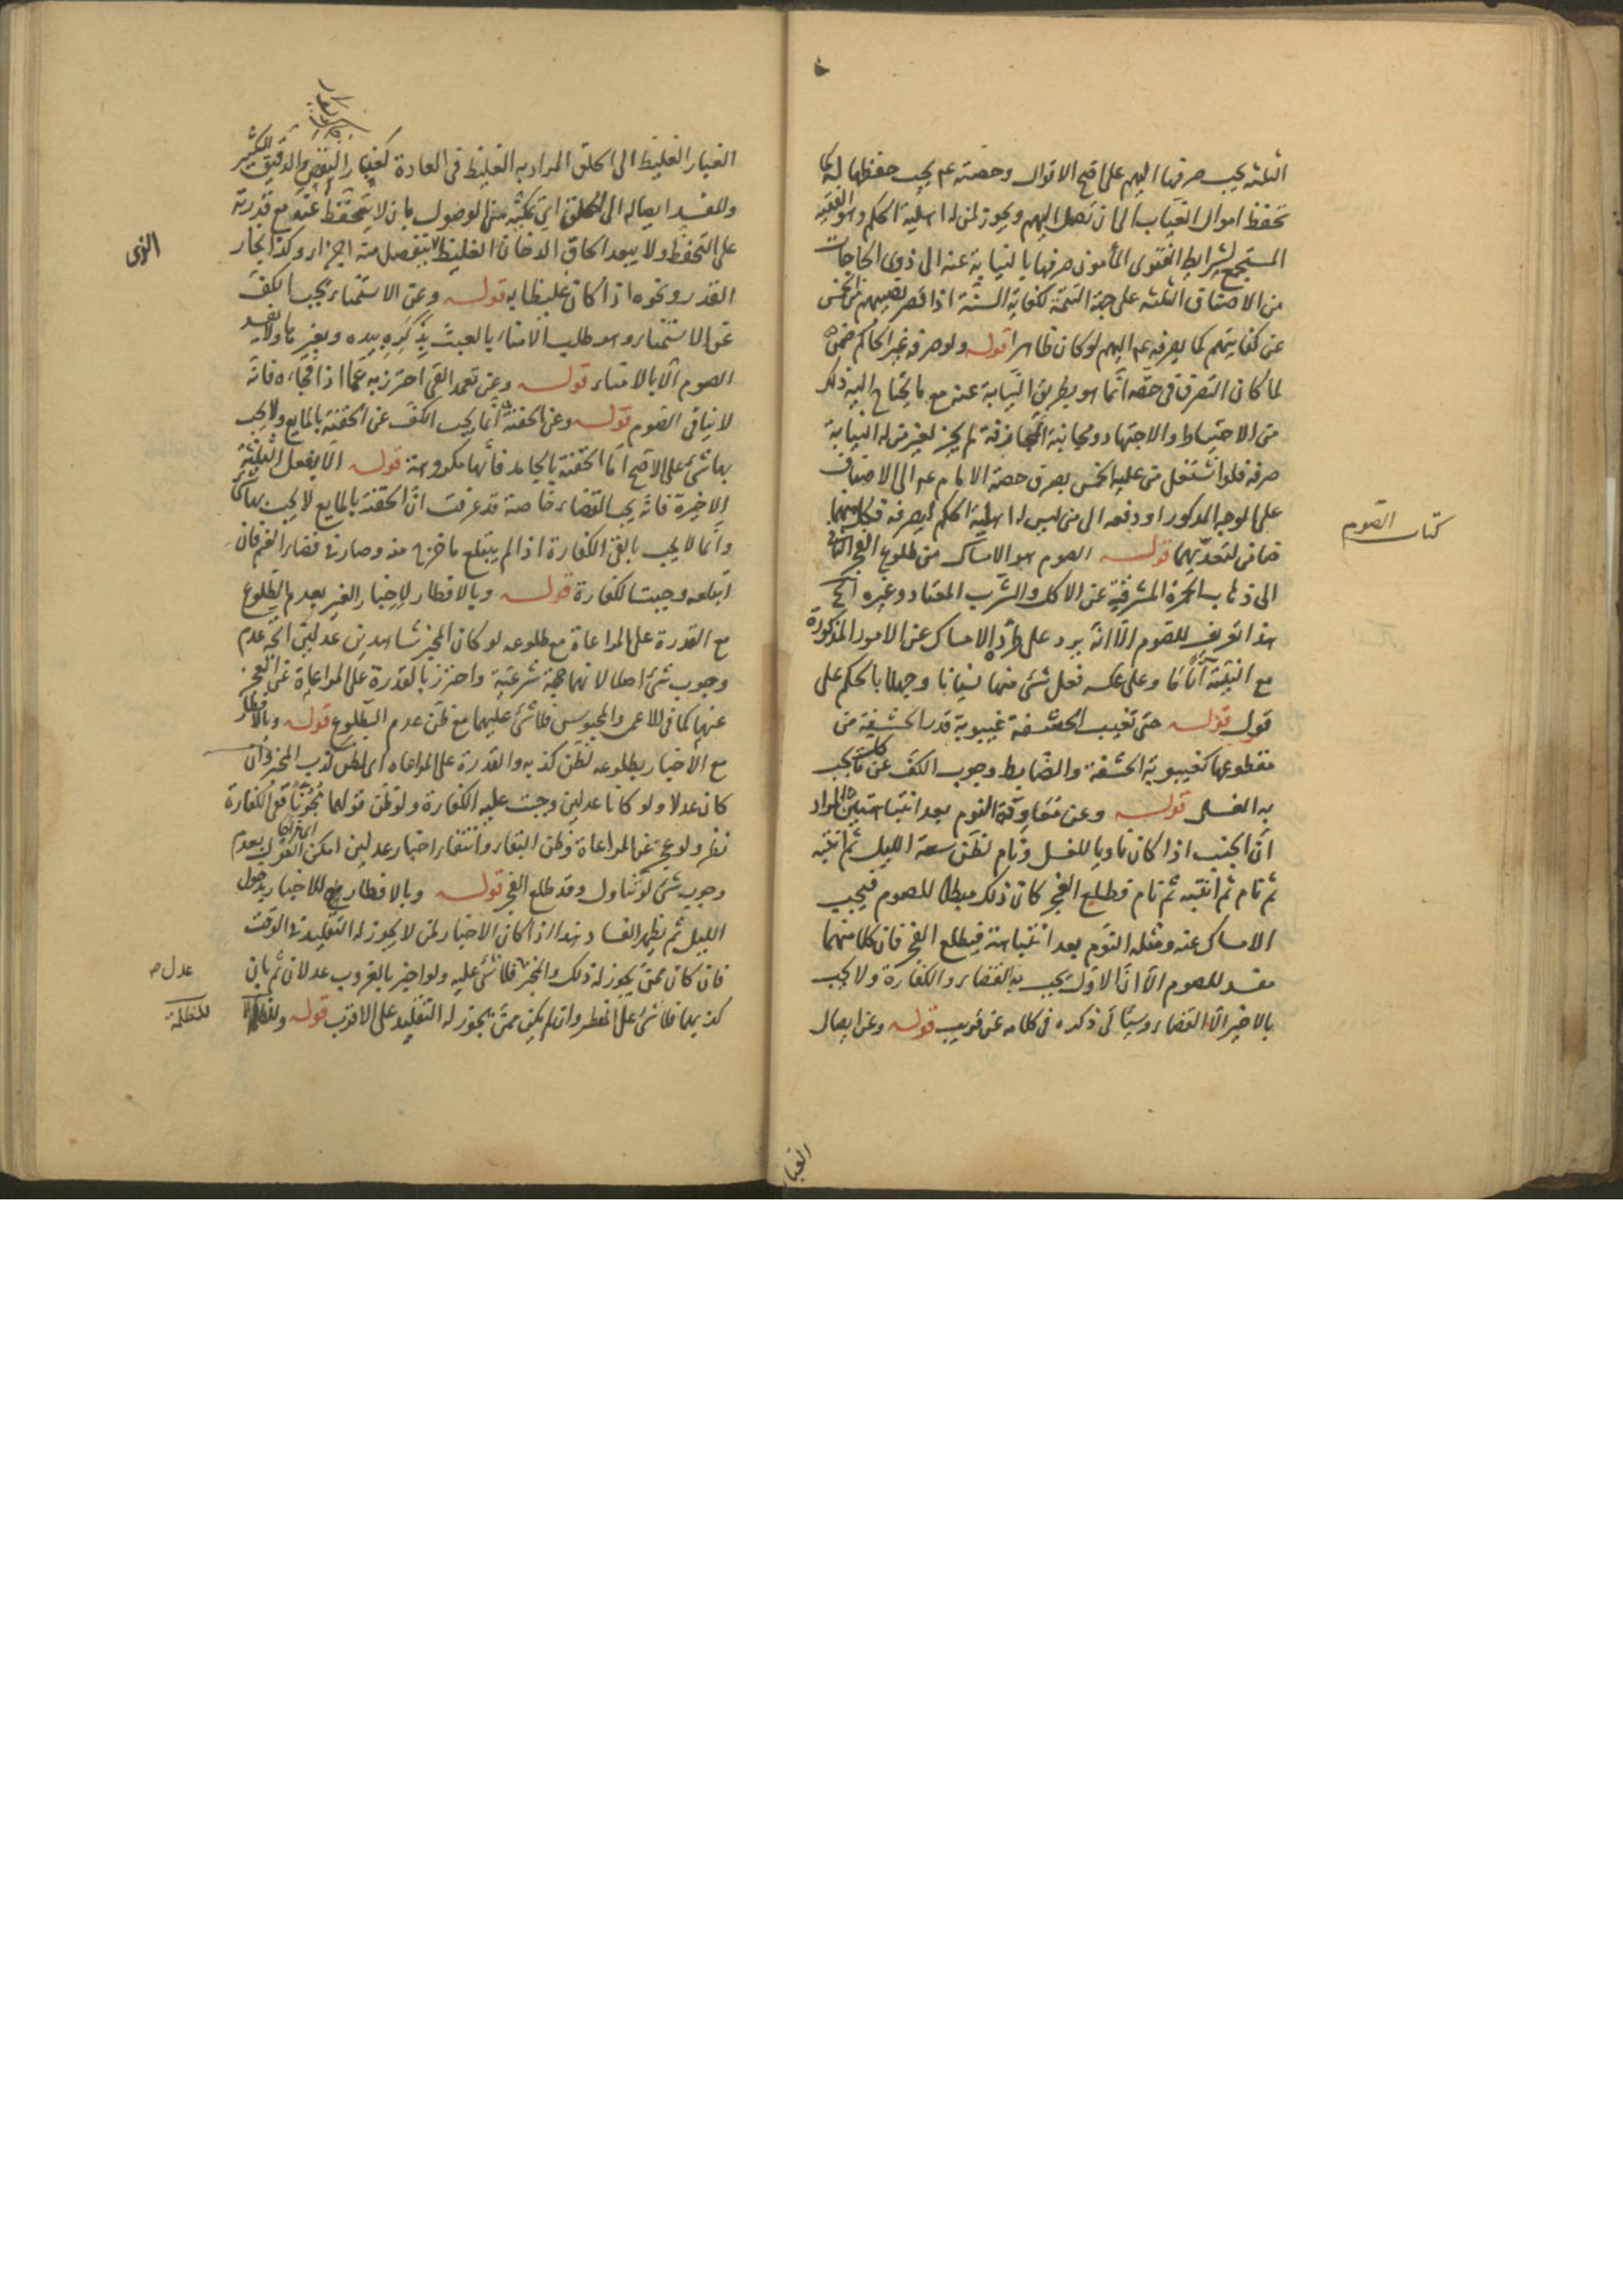 الثلثه يجب صرفها اليهم على اصح الاقوال وحصته عم يجب حفظها له كما
تحفظ اموال الغياب الى ان تصل اليهم ويجوز لمن له اهلية الحكم وهو الفقيه
المستجمع لشرايط الفتوى المأمون صرفها بالنيابة عنه الى ذوى الحاجات
من الاصناف الثلثه على جهة التتمة لكفاية السنة اذا قصر نصيبهم من الخمس
عن كفايتهم كما يصرفه عم اليهم لو كان ظاهرا قوله ولو صرفه غير الحاكم ضمن
لما كان التصرف في حصّه انما هو بطريق النيابة عنه مع ما يحتاج اليه ذلك
من الاحتياط والاجتهاد ومجانبة المجازفة لم يجز لغير من له النيابة
صرفه فلو اشتغل من عليه الخمس بصرف حصة الامام عم الى الاصناف
على الوجه المذكور او دفعه الى من ليس له اهلية الحكم ليصرفه فكل منهما
ضامن لتعدّيهما قوله الصوم هو الامساك من طلوع الفجر الثانى
كتاب الصوم
الى ذهاب الحمرة المشرقية عن الاكل والشرب المعتاد وغيره الخ
هذا تعريف للصوم الّا انّه يرد على طرده الامساك عن الامور المذكورة
مع النيّة آنا ما وعلى عكسه فعل شئ منها نسيانا وجهلا بالحكم على
قول قوله حتى تغيب الحشفة غيبوبة قدر الحشفة من
مقطوعها كغيبوبة الحشفة والضابط وجوب الكف عن كل ما يجب
به الغسل قوله وعن معاودة النوم بعد انتباهتين المراد
ان الجنب اذا كان ناويا للغسل ونام لظن سعة الليل ثم انتبه
ثم نام ثم انتبه ثم نام فطلع الفجر كان ذلك مبطلا للصوم فيجب
الامساك عنه ومثله النوم بعد انتباهة فيطلع الفجر فان كلا منهما
مفسد للصوم الّا انّ الاول يجب به القضاء والكفارة ولا يجب
بالاخير الّا القضاء وسيأتى ذكره في كلامه عن قريب قوله وعن ايصال
الغبا
الغبار الغليظ الى الحلق المراد به الغليظ في العادة كغبار النفض والدقيق الكثير
والمفسد ايصاله الى الحلق اى تمكينه من الوصول بان لا يتحفظ عنه مع قدرته
على التحفظ ولا يبعد الحاق الدخان الغليظ يتفصل منه اجزاء وكذا بخار
القدر ونحوه اذا كان غليظا به قوله وعن الاستمناء يجب الكف
عن الاستمناء وهو طلب الامناء بالعبث بذكره بيده وبغيرها ولا يفسد
الصوم الّا بالامناء قوله وعن تعمد القئ احترز به عما اذا فجاءه فانه
لا ينافى الصوم قوله وعن الحقنة انما يجب الكف عن الحقنة بالمايع ولا يجب
بها شئ على الاصح اما الحقنة بالجامد فأنها مكروهة قوله الّا بفعل الثلثة
الاخيرة فانه يجب القضاء خاصة قد عرفت ان الحقنة بالمايع لا يجب بها شئ
وانما لا يجب بالقئ الكفارة اذا لم يبتلع ما خرج منه وصار في فضاء الفم فان
ابتلعه وجبت الكفارة قوله وبالافطار لاخبار الغير بعدم الطلوع
مع القدرة على المراعاة مع طلوعه لو كان المخبر شاهدين عدلين اتجه عدم
وجوب شئ اصلا لانهما حجة شرعية واحترز بالقدرة على المراعاة عن العجز
عنها كما في الاعمى والمحبوس فلا شئ عليهما مع ظن عدم الطلوع قوله وبالافطار
مع الاخبار بطلوعه لظن كذبه والقدرة على المراعاه اى لظن كذب المخبر وان
كان عدلا ولو كانا عدلين وجبت عليه الكفارة ولو ظن قولهما مجوّزا ففى الكفارة
نظر ولو عجز عن المراعاة وظن البقاء وانتفاء اخبار عدلين امكن القول بعدم
وجوب شئ لو تناول وقد طلع الفجر قوله وبالافطار للاخبار بدخول
الليل ثم يظهر الفساد هذا اذا كان الاخبار لمن لا يجوز له التقليد في الوقت
فان كان ممن يجوز له ذلك والمخبر فلا شئ عليه ولو اخبر بالغروب عدلان ثم بان
عدل صح
كذبهما فلا شئ على المفطر وان لم يكن ممن يجوز له التقليد على الاقرب قوله وللظلمة
للظلمة